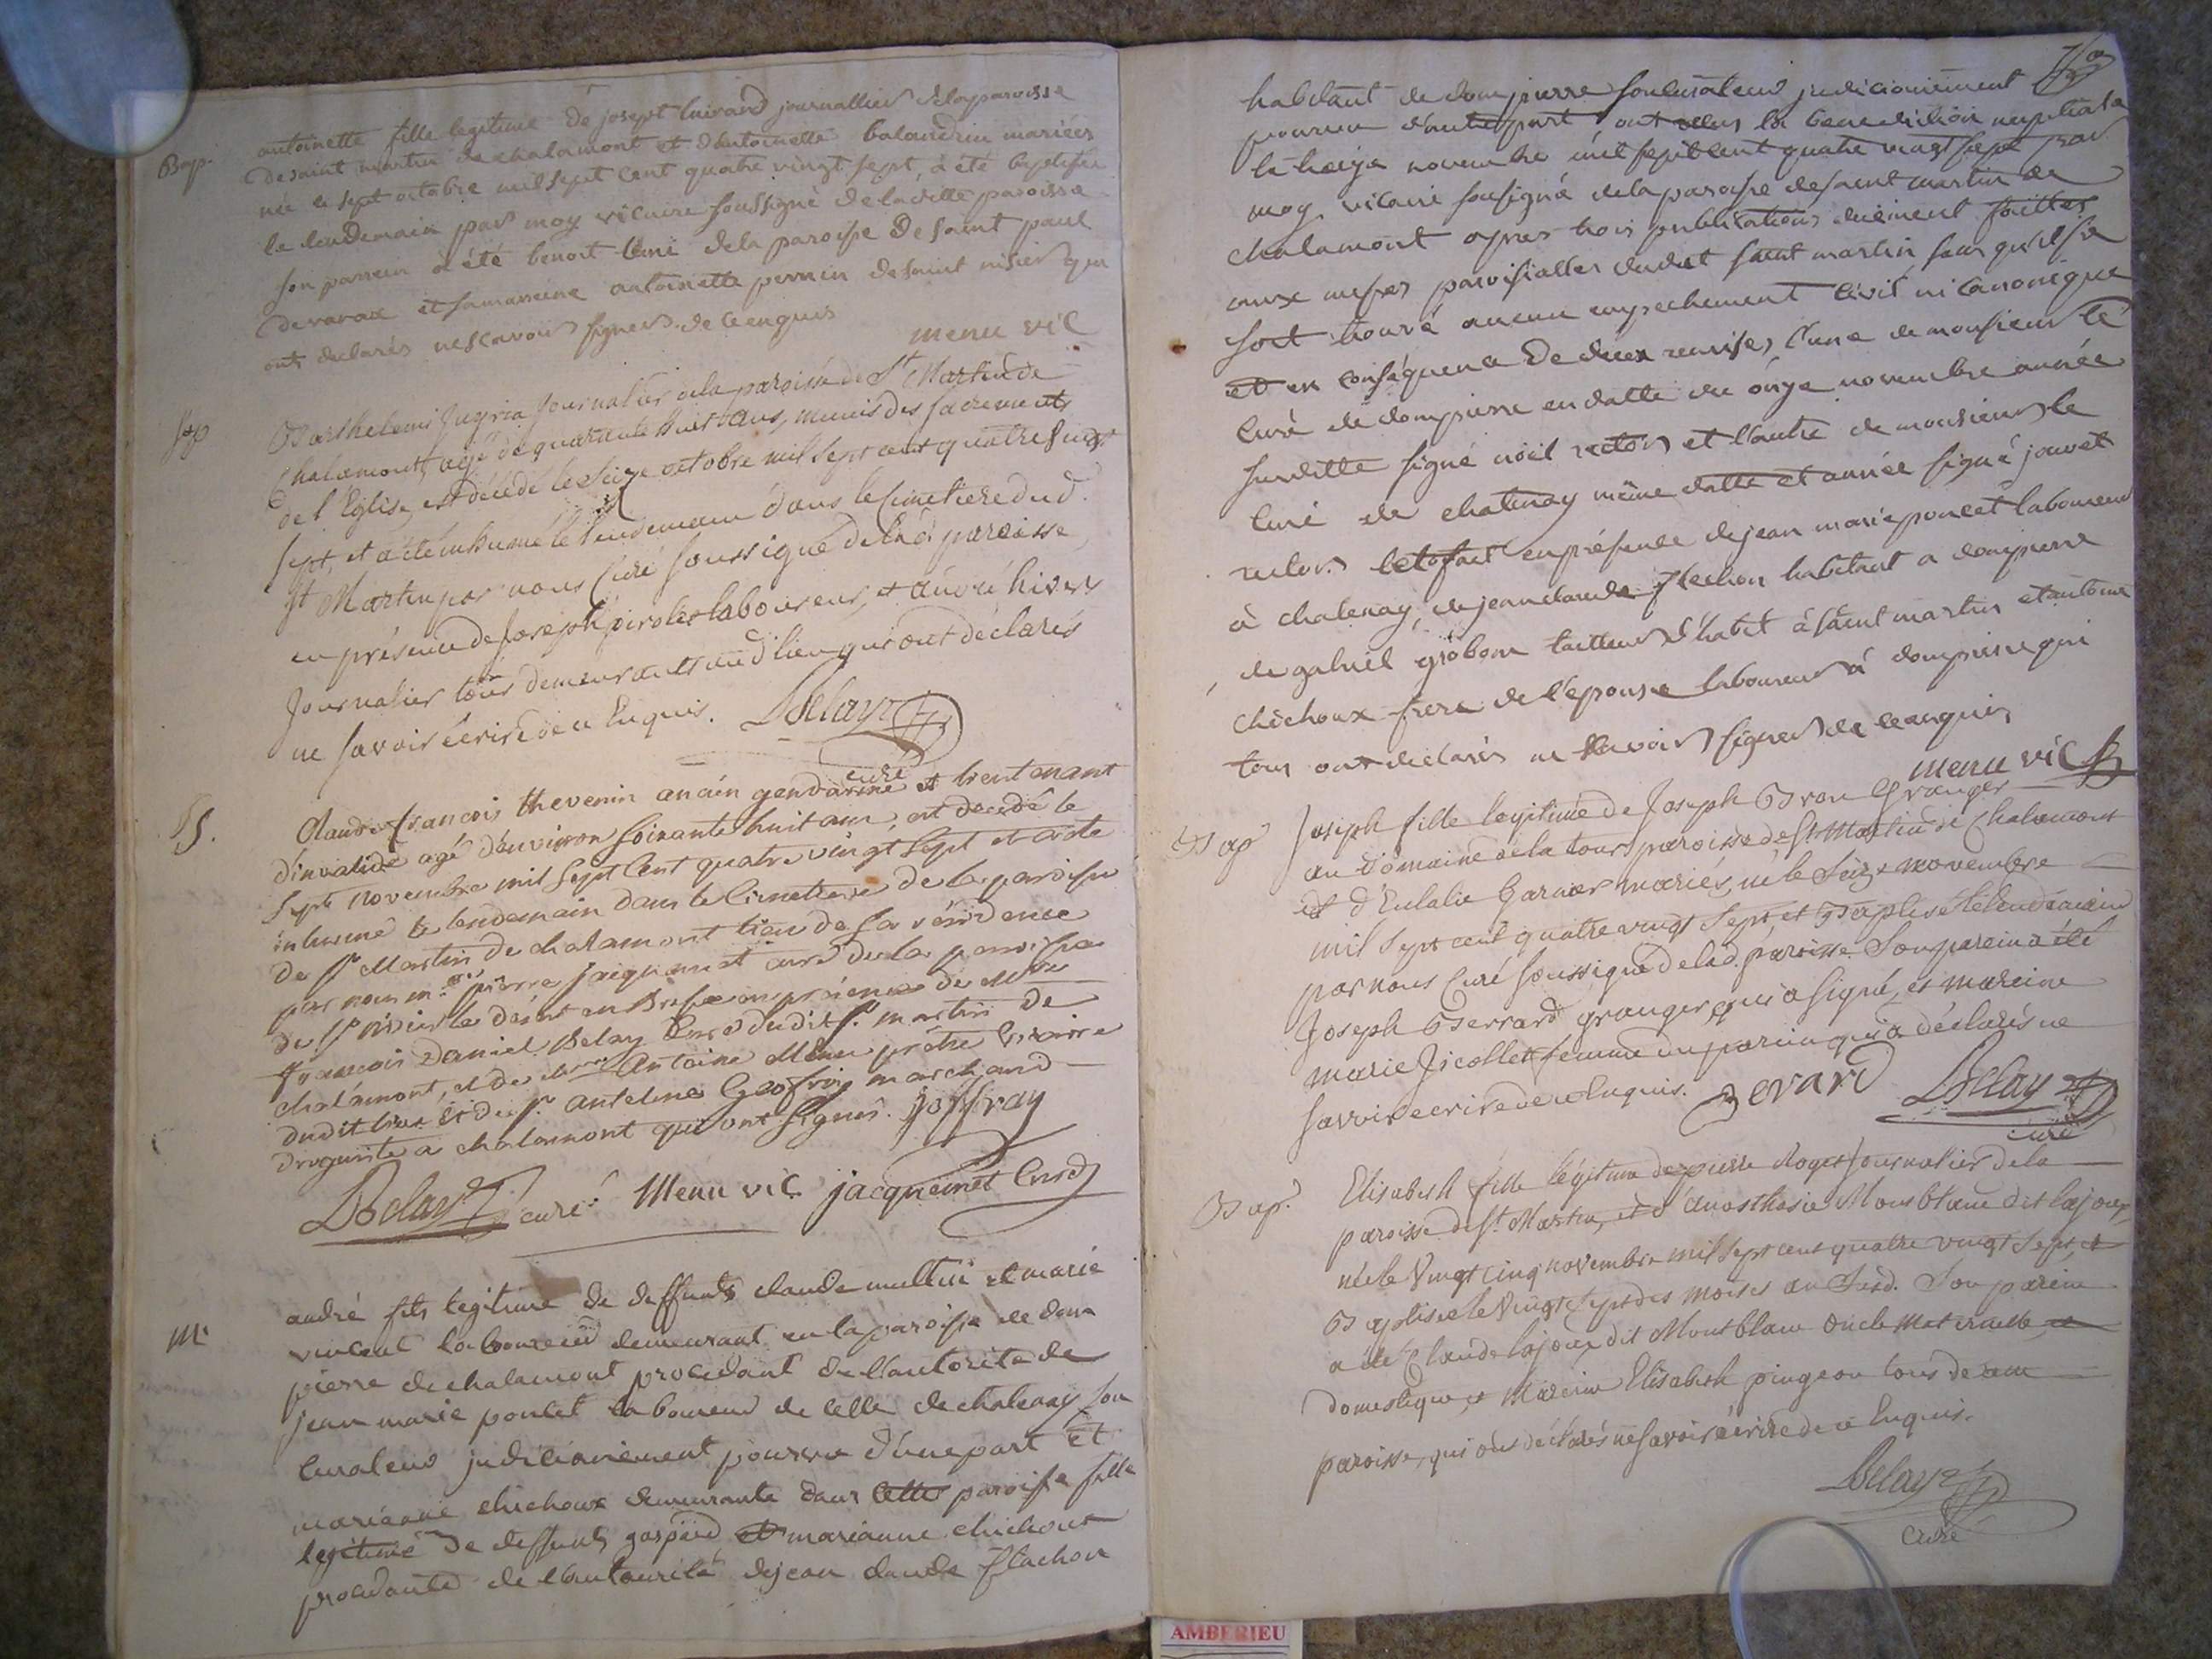 Bap.
antoinette fille legitime de josept journallier de la paroisse
de saint martin de chalamont et d'antoinette balandrin mariées
née le sept octobre mil sept cent quatre vingt sept, à été baptisée
le lendemain par moy vicaire soussigné de la ditte paroisse
son parrein à été benoit de la paroisse de saint paul
de varax et sa marreine antoinette perrin de saint nisier qui
ont declarés ne scavoir signer de ce enquis
menu vic
Sep
Barthelemi Jugria Journalier de la paroisse de St Martin de
Chalamont, agé de quarante huit ans, munis des sacrements
de l'Eglise, est décédé le seize octobre mil sept cent quatre vingt
sept, et a été inhumé le lendemain dans le Cimetiere dud.
St Martin par nous Curé soussigné de lad. paroisse,
en présence de Joseph pirolet laboureur, et hivert
Journalier tous demeurants aud lieu qui ont déclarés
ne savoir écrire de ce Enquis. Delay
curé
S.
Claude francois thevenin ancien gendarme et lieutenant
d'invalide agé d'environ soixante huit ans, est decedé le
sept novembre mil sept cent quatre vingt sept et a été
inhumé le lendemain dans le cimettiere de la paroisse
de St Martin de chalamont lieu de sa résidence
par nous mre pierre jacquemet curé de la paroisse
de St nisier le désert en Bresse en présence de Mre
françois Daniel Delay Curé dudit St martin de
chalamont, et de Mre Antoine Menu prêtre vicaire
dudit lieu et du Sr antelme Geoffray marchand
droguiste a chalamont qui ont signés. joffray
Delay curé Menu vic jacquemet Curé
M.
andré fils legitime de deffunts claude et marie
vincent laboureur demeurant en la paroisse de dom
pierre de chalamont procedant de l'autorité de
jean marie poncet laboureur de celle de chatenay son
curateur judiciairement pourvu d'une part et
marianne chichoux demeurante dans cette paroisse fille
legitime de deffunts gaspard et marianne chichoux
procedante de l'autorité de jean claude flachon
habitant de dompierre son curateur judiciairement
pourvu d'autre part, ont reçus la benediction nuptiale
le treize novembre mil sept cent quatre vingt sept par
moy vicaire sousigné de la paroisse de saint martin de
chalamont apres trois publications duement faittes
aux messes paroissialles dudit saint martin sans qu'il se
soit trouvé aucun empechement civil ni canonique
et en conséquence de deux remises, l'une de monsieur le
curé de dompierre en datte du onze novembre année
susditte signé recteur et l'autre de monsieur le
curé de chatenay même datte et année signé jouvet
recteur. Le tout fait en présence de jean marie poncet laboureur
à chatenay, de jean claude flachon habitant a dompierre
de gabriel grobon tailleur d'habit à saint martin et antoine
chichoux frere de l'epouse laboureur à dompierre qui
tous ont declarés ne scavoir signer de ce enquis
menu vic
Bap
Joseph fille legitime de Joseph Granger
au domaine de la tour paroisse de St Martin de Chalamont
et d'Eulalie Garnier mariés, né le Seize novembre
mil sept cent quatre vingt sept, et Baptisé le lendemain
par nous Curé soussigné de lad. paroisse. Son parein a été
Joseph Berrard granger, qui a signé, et mareine
marie Jicollet femme du parein qui a déclarés ne
savoir ecrire de ce Enquis. Berard Delay
curé
Bap.
Elisabeth fille légitime de pierre Roger Journalier de la
paroisse de St Martin, et d'Anasthasie Montblanc dit lajoux,
née le Vingt Cinq novembre mil sept cent quatre vingt sept et
Baptisée le Vingt Sept des mois et an Susd. Son parein
a été Claude lajoux dit Montblanc oncle maternelle
domestique, et Mareine Elisabeth pingeon tous de
paroisse, qui ont déclarés ne savoir écrire de ce Enquis.
Delay
Curé
AMBERIEU